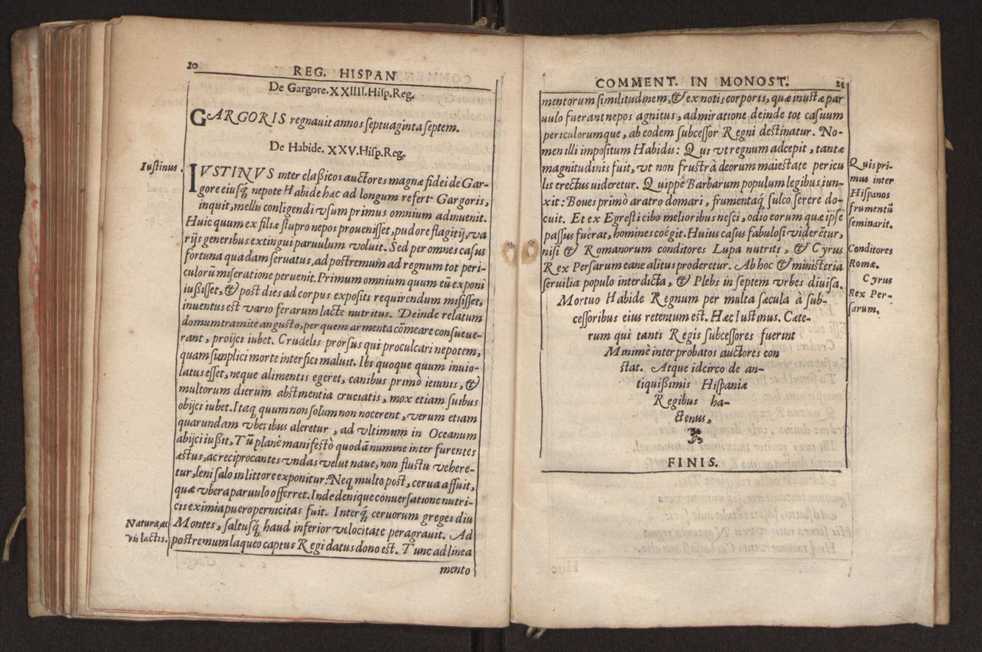 20
REG. HISPAN
De Gargore. XXIIII. Hisp. Reg.
GARGORIS regnauit annos septuaginta septem.
De Habide. XXV. Hisp. Reg.
Iustinus.
IVSTINVS inter claßicos auctores magnæ fidei de Gar-
gore eiusq́; nepote Habide hæc ad longum refert. Gargoris,
inquit, mellis conligendi vsum primus omnium adinuenit.
Huic quum ex filiæ stupro nepos prouenisset, pudore flagitij, va
rijs generibus extingui paruulum voluit. Sed per omnes casus
fortuna quadam seruatus, ad postremum ad regnum tot peri-
culorū miseratione peruenit. Primum omnium quum eū exponi
iußisset, & post dies ad corpus expositi requirendum misisset,
inuentus est vario ferarum lacte nutritus. Deinde relatum
domum tramite angusto, per quem armenta cōmeare consueue-
rant, proijci iubet. Crudelis prorsus qui proculcari nepotem,
quam simplici morte interfici maluit. Ibi quoque quum inuio-
latus esset, neque alimentis egeret, canibus primò ieiunis, &
multorum dierum abstinentia cruciatis, mox etiam suibus
obijci iubet. Itaq; quum non solum non nocerent, verum etiam
quarundam vberibus aleretur, ad vltimum in Oceanum
abijci iußit, Tū planè manifesto quodā numine inter furentes
æstus, ac reciprocantes vndas velut naue, non fluctu vehere-
tur, leni salo in littore exponitur: Neq; multo post, cerua affuit,
quæ vbera paruulo offerret. Inde denique conuersatione nutri-
cis eximia puero pernicitas fuit. Interq́; ceruorum greges diu
Montes, saltusq́; haud inferior velocitate peragrauit. Ad
postremum laqueo captus Regi datus dono est. Tunc ad linea
mento
Natura, ac
vis lactis.
COMMENT. IN MONOST.
21
mentorum similitudinem, & ex notis corporis, quæ inustæ par
uulo fuerant nepos agnitus, admiratione deinde tot casuum
periculorumque, ab eodem subcessor Regni destinatur. No-
men illi impositum Habidis: Qui vt regnum adcepit, tantæ
magnitudinis fuit, vt non frustrà deorum maiestate pericu
lis erectus uideretur. Quippè Barbarum populum legibus iun-
xit: Boues primò aratro domari, frumentaq́; sulco serere do-
cuit. Et ex Egresti cibo melioribus vesci, odio eorum quæ ipse
passus fuerat, homines coëgit. Huius casus fabulosi viderētur,
nisi & Romanorum conditores Lupa nutriti, & Cyrus
Rex Persarum cane alitus proderetur. Ab hoc & ministeria
seruilia populo interdicta, & Plebs in septem vrbes diuisa.
Mortuo Habide Regnum per multa sæcula à sub-
cessoribus eius retentum est. Hæc Iustinus. Cæte-
rum qui tanti Regis subcessores fuerint
Minimè interprobatos auctores con
stat. Atque idcirco de an-
tiquißimis Hispaniæ
Regibus ha-
ctenus,
FINIS.
Quis pri-
mus inter
Hispanos
frumentū
seminarit.
Conditores
Romæ.
Cyrus
Rex Per-
sarum.